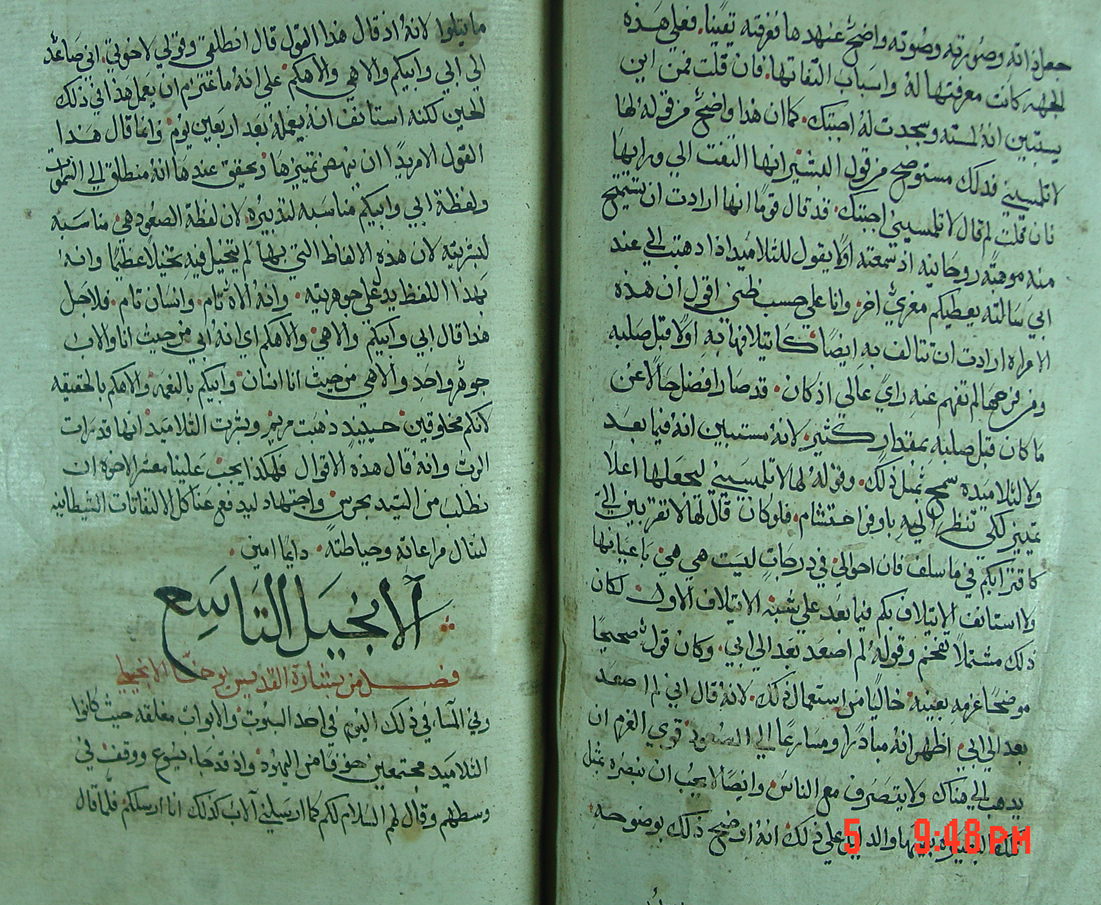 جعل ذاته وصورته وصوته واضح عندها فعرفته يقينًا. فعلى هذه
الجهه كانت معرفتها له واسباب التفاتها. فان قلت فمن اين
يستبين انه لمسته وسجدت له اجبتك. كما ان هذا واضح من قوله لها
لاتلمسيني فذلك مستوضح من قول البشير انها التفت الى ورايها
فان قلت لم قال لاتلمسيني اجبتك. قد قال قومًا انها ارادت ان تستمتع
منه موهبه روحانيه اذ سمعته اولًا يقول للتلاميذ اذا ذهبت الى عند
ابي سالته يعطيكم معزي اخر. وانا على حسب ظني اقول ان هذه
الامراه ارادت ان تتالف به ايضًا كايتلافها به اولًا قبل صلبه
ومن فرحها لم تفهم عنه راي عالى اذ كان. قد صار افضل حالًا عن
ما كان قبل صلبه بمقدار كثير. لانه مستبين انه فيما بعد
ولا لتلاميذه سمح بمثل ذلك. وقوله لها لاتلمسيني ليجعلها اعلا
تمييز لكي تنظر اليه باوفر احتشام. فلو كان قال لها لاتقربين الي
كاقترابكم في ما سلف فان احوالي في درجات ليست هي هي باعيانها
ولا استانف الايتلاف بكم فيما بعد على شبه الايتلاف الاول لكان
ذلك مشتملًا تفخم وقوله لم اصعد بعد الى ابي. وكان قوله صحيحًا
موضحًا غرضه بعينه. خاليًا من استعمال ذلك. لانه قال اني لم اصعد
بعد الى ابي. اظهر انه مبادرًا ومسارعًا الى الصعود قوي العزم ان
يذهب الى هناك ولايتصرف مع الناس. وايضًا لايجب ان تبصره بمثل
تلك البصيره بعينها والدليل على ذلك. انه اوضح ذلك بوضوحه
ما يتلوا لانه اذ قال هذا القول قال انطلقي وقولي لاخوتي. اني صاعد
الى ابي وابيكم والاهي والاهكم. على انه ما عتزم ان يعمل هذا في ذلك
الحين لكنه استانف انه يعمله بعد اربعين يوم. وانما قال هذا
القول الامريدًا ان ينهض تمييزها. ويحقق عندها انه منطلق الى السموات
ولفظة ابي وابيكم مناسبه لتدبيره. لان لفظة الصعود هي مناسبه
لبشريته لان هذه الالفاظ التي بها لم يتخيل فيه تخيلًا عظيمًا وانه
بهذا اللفظ يدل على جوهريته. وانه الاه تام. وانسان تام. فلاجل
هذا قال ابي وابيكم. والاهي والاهكم اي انه ابي من حيث انا والاب
جوهر واحد والاهي من حيث انا انسان. وابيكم بالنعمه والاهكم بالحقيقه
لانكم مخلوقين حينيذ ذهبت مريم وبشرت التلاميذ انها قد رات
الرب وانه قال هذه الاقوال فلهذا يجب علينا معشر الاخوه ان
نطلب من السيد بحرص واجتهاد ليدفع عنا كل الالتفاتات الشيطانيه
لننال مراعاته وحياطته. دايمًا امين.
الانجيل التاسع
فصل من بشارة القديس يوحنا الانجيلي
وفي المسا في ذلك اليوم في احد السبوت والابواب مغلقه حيث كانوا
التلاميذ مجتمعين خوفًا من اليهود واذ قد جا. يسوع ووقف في
وسطهم وقال لهم السلام لكم كما ارسلني الاب كذلك انا ارسلكم فلما قال
5 9:48PM